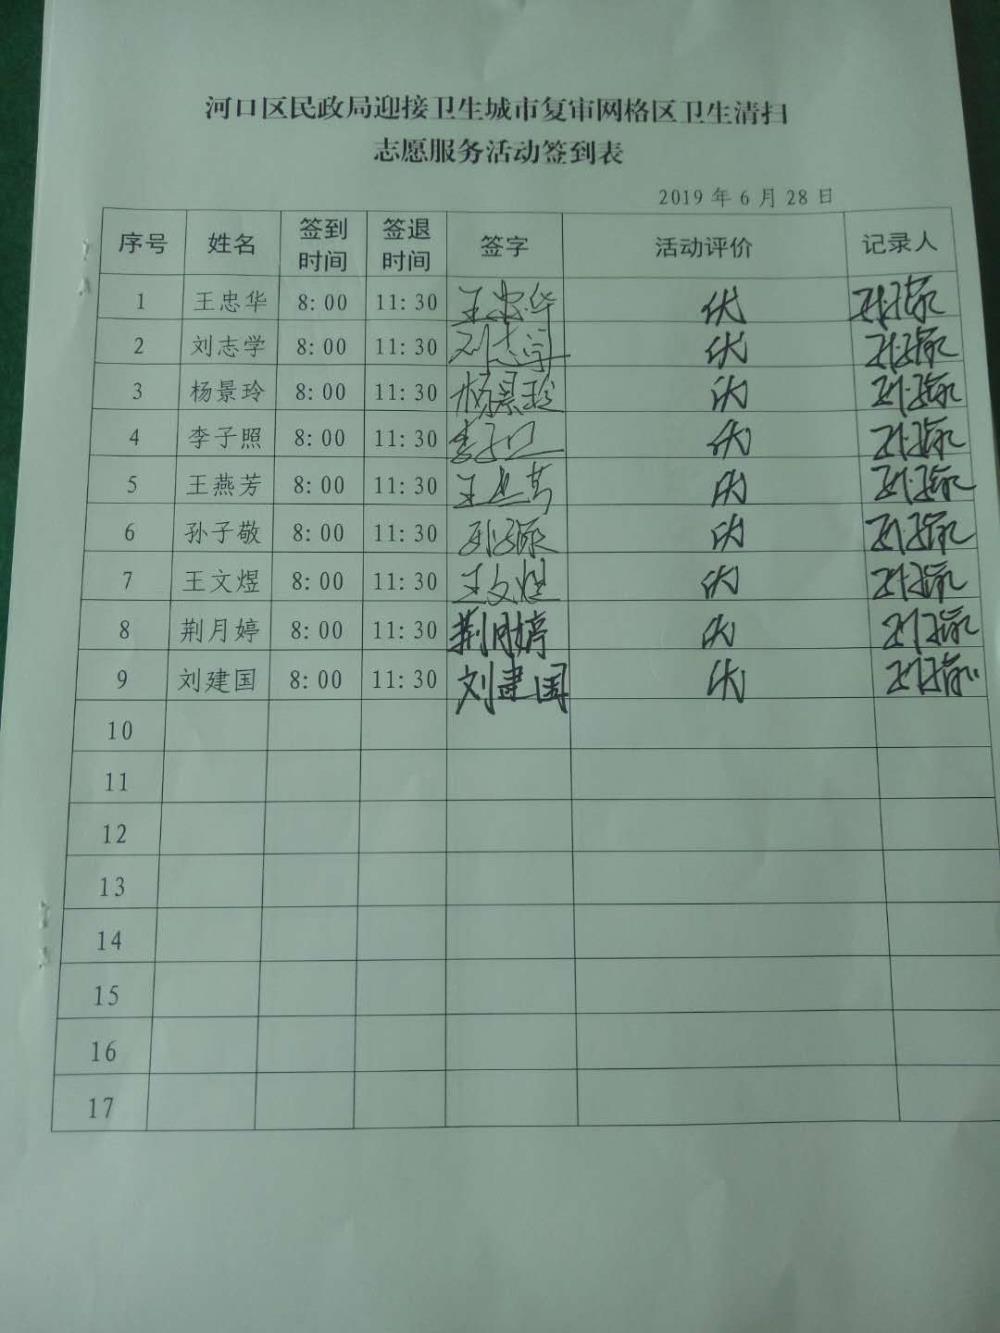 河口区民政局迎接卫生城市复审网格区卫生清扫
志愿服务活动签到表
2019 年 6 月 28 日
序号 姓名 签到时间 签退时间 签字 活动评价 记录人
1 王忠华 8:00 11:30 王忠华 优 孙子敬
2 刘志学 8:00 11:30 刘志学 优 孙子敬
3 杨景玲 8:00 11:30 杨景玲 优 孙子敬
4 李子照 8:00 11:30 李子照 优 孙子敬
5 王燕芳 8:00 11:30 王燕芳 优 孙子敬
6 孙子敬 8:00 11:30 孙子敬 优 孙子敬
7 王文煜 8:00 11:30 王文煜 优 孙子敬
8 荆月婷 8:00 11:30 荆月婷 优 孙子敬
9 刘建国 8:00 11:30 刘建国 优 孙子敬
10
11
12
13
14
15
16
17